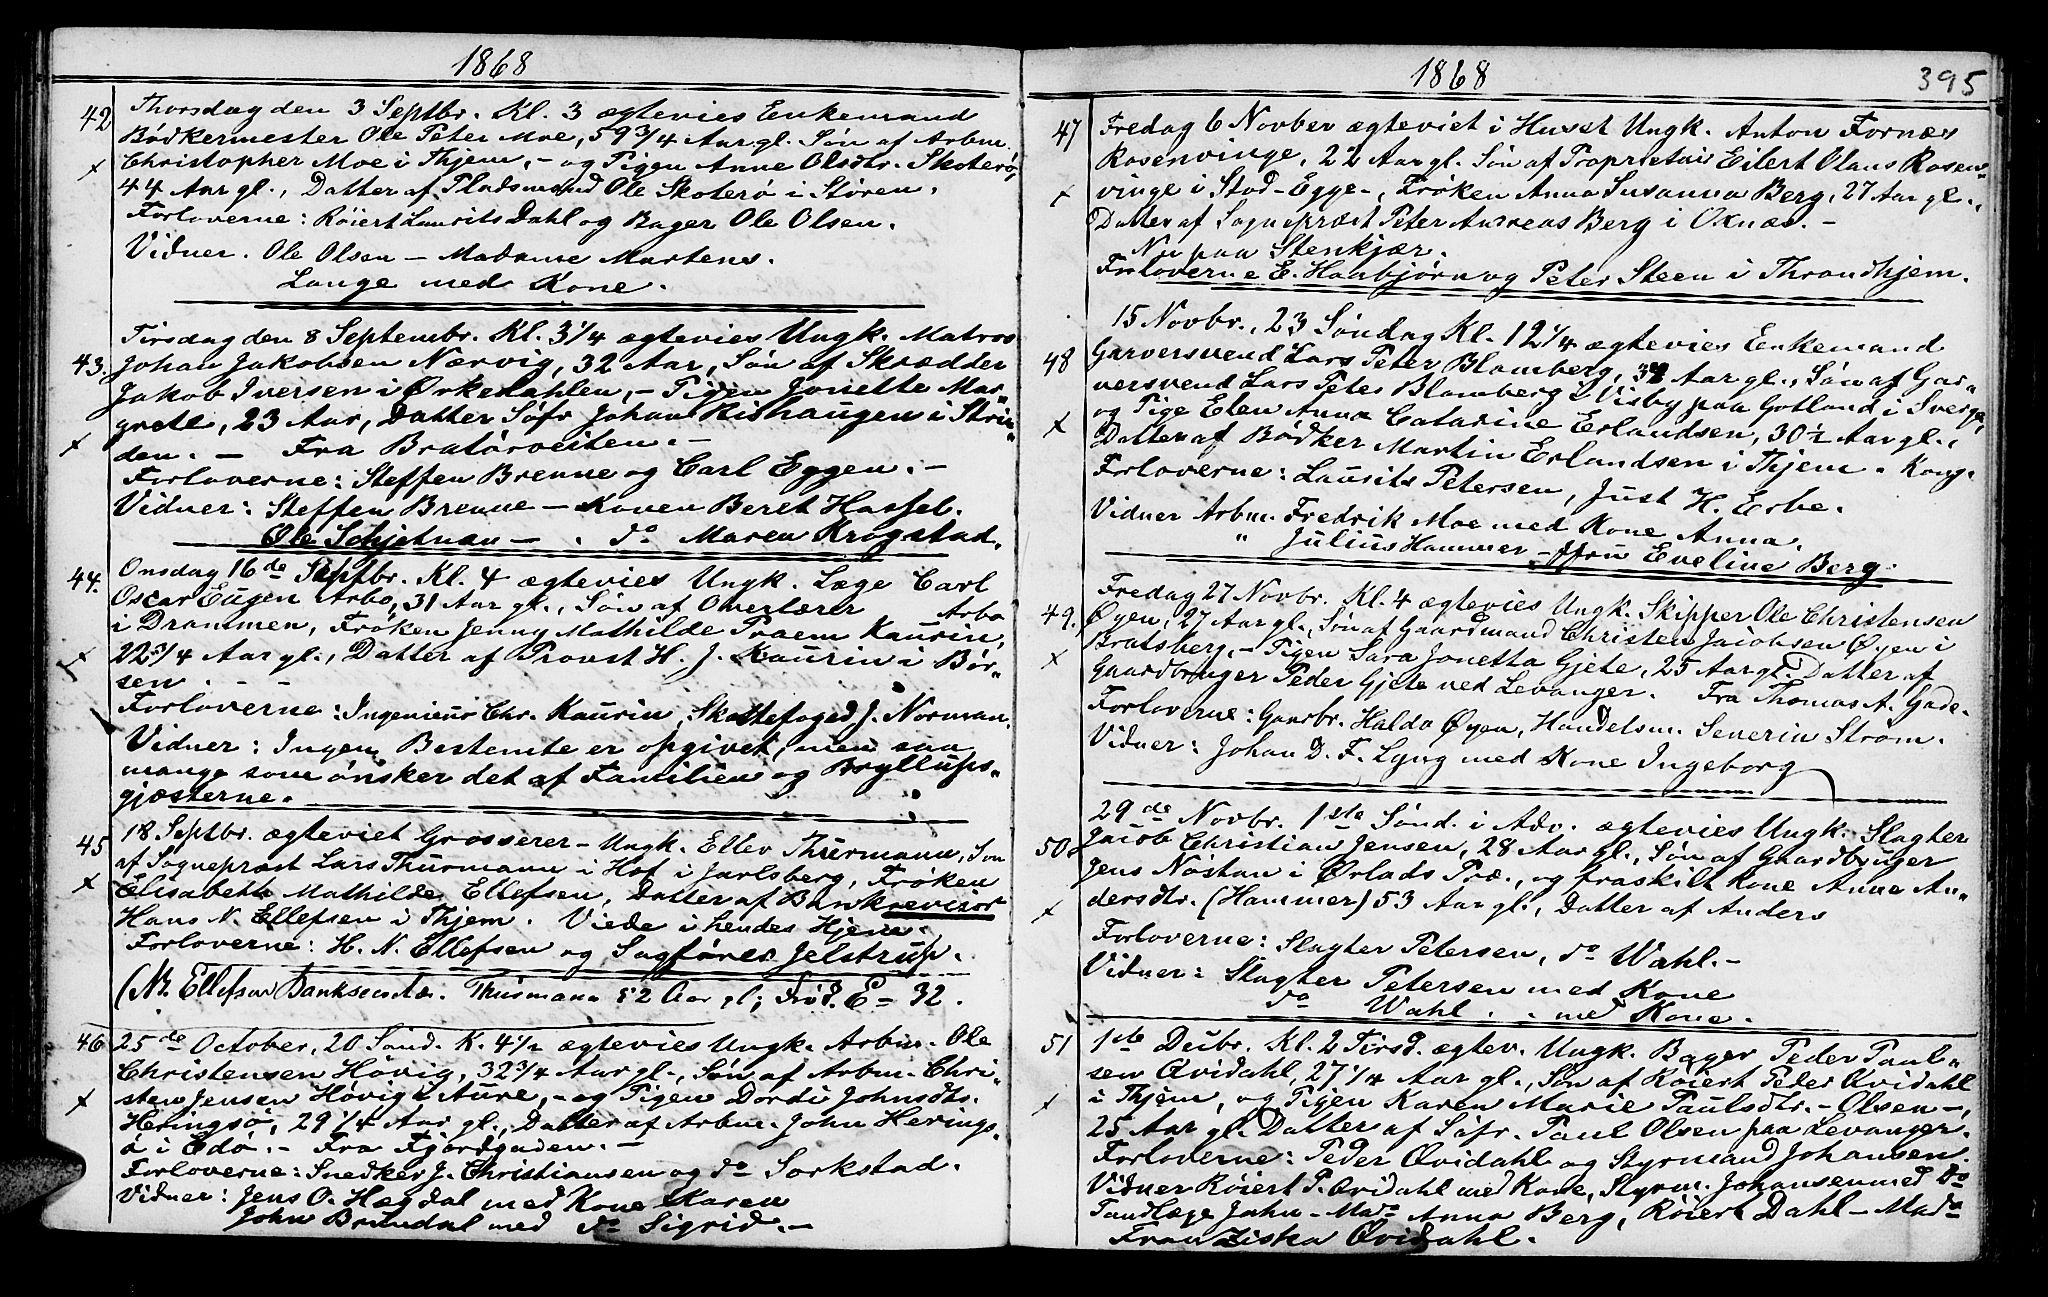 1868
42 Thorsdag den 3 Septbr. Kl. 3 ægtevies Enkemand
Bødkermester Ole Peter Moe, 59 3/4 Aar gl. Søn af Arbm.
x Christopher Moe i Thjem, - og Pigen Anne Olsdtr. Skoterø,
44 Aar gl., Datter af Pladsmand Ole Skoterø i Støren.
Forloverne: Røiert Laurits Dahl og Bager Ole Olsen.
Vidner. Ole Olsen - Madame Martens.
Lange med Kone.
Tirsdag den 8 Septembr. Kl. 3 1/4 ægtevies Ungk. Matros
43. Johan Jakobsen Nærvig, 32 Aar, Søn af Skrædder
Jakob Iversen i Ørkedahlen, - Pigen Jonette Mar-
grete, 23 Aar, Datter Søfr Johan Rishaugen i Strin-
x den. - Fra Bratørveiten. -
Forloverne: Steffen Brenne og Carl Eggen. -
Vidner: Steffen Brenne - Konen Beret Hassel.
Ole Schjetnan - . do Maren Krogstad.
44. Onsdag 16de Septbr. Kl. 4 ægtevies Ungk. Læge Carl
Oscar Eugen Arbo, 31 Aar gl., Søn af Overlærer Arbo
i Drammen, Frøken Jenny Mathilde Praem Kaurin,
x 22 3/4 Aar gl., Datter af Provst H. J. Kaurin i Bør-
sen. - -
Forloverne: Ingenieur Chr. Kaurin, Skattefoged J. Norman.
Vidner: Ingen Bestemte er opgivet, men saa
mange som ønsker det af Familien og Bryllups-
gjæsterne.
45 18 Septbr. ægteviet Grosserer - Ungk. Ellev Thurmann, Søn
af Sognepræst Lars Thurmann i Hof i Jarlsberg, Frøken
x Elisabeth Mathilde Ellefsen, Datter af Bankrevisor
Hans N. Ellefsen i Thjem. Viede i hendes Hjem.
Forloverne: H. N. Ellefsen og Sagfører Jelstrup.
(N. Ellefsen Thurmann 52 Aar gl; Frød. E= 32.
46 25de October, 20 Sønd. K. 4 1/2 ægtevies Ungk. Arbm. Ole
Christensen Høvig, 32 3/4 Aar gl., Søn af Arbm. Chri-
x sten Jensen Høvig i Aure, - og Pigen Dordi Johnsdtr.
Heringsø, 29 1/4 Aar gl., Datter af Arbm. John Herings-
ø i Edø. - Fra Fjordgaden. -
Forloverne: Snedker J. Christiansen og do Sorkstad.
Vidner: Jens O. Hægdal med Kone Karen
John Brundal med do Sigrid. -
1868 395
47 Fredag 6 Novber ægteviet i Huset Ungk. Anton Fornæs
Rosenvinge, 22 Aar gl. Søn af Proprietair Eilert Olaus Rosen-
x vinge i Stod - Egge -, Frøken Anna Susanna Berg, 27 Aar gl.,
Datter af Sognepræst Peter Andreas Berg i Oxnæs. -
Nu paa Stenkjær.
Forloverne E. Haabjørn og Peter Steen i Throndhjem.
15 Novbr., 23 Søndag Kl. 12 1/4 ægtevies Enkemand
48 Garversvend Lars Peter Blomberg, Aar gl., Søn af Gar-
versvend Lars Peter Blomberg i Visby paa Gotland i Sverge,
x og Pige Elen Anna Catarine Erlandsen, 30 1/2 Aar gl.,
Datter af Bødker Martin Erlandsen i Thjem.
Forloverne: Laurits Petersen, Just H. Erbe.
Vidner Arbm. Fredrik Moe med Kone Anna.
" Julius Hammer - Jfru Eveline Berg.
Fredag 27 Novbr. Kl. 4 ægtevies Ungk. Skipper Ole Christensen
49. Øyen, 27 Aar gl., Søn af Gaardmand Christen Jacobsen Øyen i
x Bratsberg, - Pigen Sara Jonetta Gjete, 25 Aar gl. Datter af
Gaardbruger Peder Gjete ved Levanger. Fra Thomas A. Gade.
Forloverne: Gaarbr. Haldo Øyen, Handelsm. Severin Strøm.
Vidner: Johan D. F. Lyng med Kone Ingeborg
29de Novbr. 1ste Sønd. i Adv. ægtevies Ungk. Slagter
50 Jacob Christian Jensen, 28 Aar gl., Søn af Gaardbruger
Jens Nøstan i Ørlads Præ., og fraskilt Kone Anne An-
x dersdtr. (Hammer) 53 Aar gl., Datter af Anders
Forloverne: Slagter Petersen, do Wahl. -
Vidner: Slagter Petersen med Kone
do Wahl. . med Kone.
51 1ste Decbr. Kl. 2 Tirsd. ægtev. Ungk. Bager Peder Paul-
sen Qvidahl, 27 1/4 Aar gl., Søn af Røiert Peder Qvidahl
x i Thjem, og Pigen Karen Marie Paulsdtr. - Olsen -,
25 Aar gl. Datter af Søfr. Paul Olsen paa Levanger.
Forloverne: Peder Qvidahl og Styrmand Johansen.
Vidner Røiert P. Qvidahl med Kone, Styrm. Johansen med do
Tandlæge Jahn - Mad. Anna Berg, Røiert Dahl - Mad.
Franziska Qvidahl.